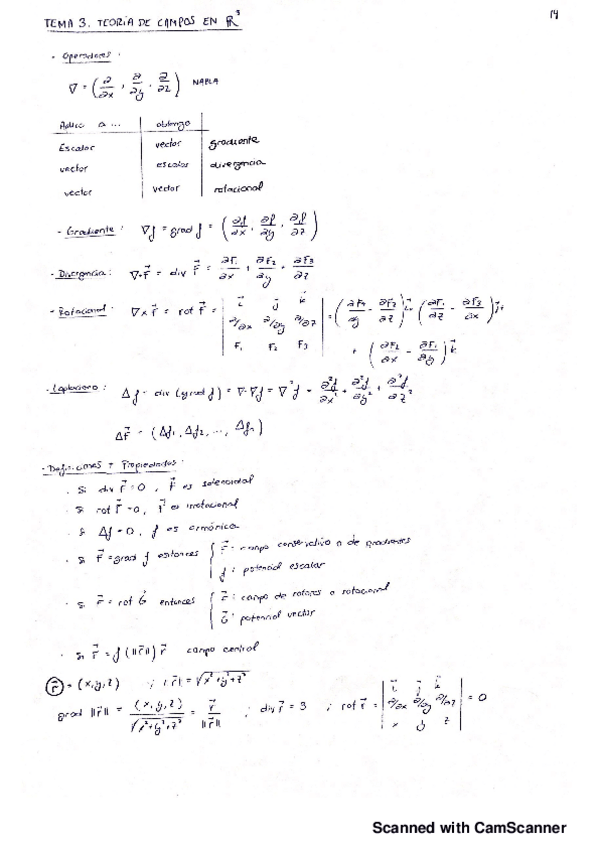 14
TEMA 3. TEORÍA DE CAMPOS EN ℝ³
· Operadores:
∇ = (∂/∂x, ∂/∂y, ∂/∂z) NABLA
Aplico a ... | obtengo
Escalar | vector | gradiente
vector | escalar | divergencia
vector | vector | rotacional
- Gradiente: ∇f = grad f = (∂f/∂x, ∂f/∂y, ∂f/∂z)
- Divergencia: ∇·F⃗ = div F⃗ = ∂F₁/∂x + ∂F₂/∂y + ∂F₃/∂z
- Rotacional: ∇×F⃗ = rot F⃗ = | i⃗ j⃗ k⃗ ; ∂/∂x ∂/∂y ∂/∂z ; F₁ F₂ F₃ | = (∂F₃/∂y - ∂F₂/∂z) i⃗ + (∂F₁/∂z - ∂F₃/∂x) j⃗ +
+ (∂F₂/∂x - ∂F₁/∂y) k⃗
- Laplaciano: Δf = div (grad f) = ∇·∇f = ∇²f = ∂²f/∂x² + ∂²f/∂y² + ∂²f/∂z²
ΔF⃗ = (Δf₁, Δf₂, ..., Δfₙ)
· Definiciones + Propiedades:
· Si div F⃗ = 0, F⃗ es solenoidal
· Si rot F⃗ = 0, F⃗ es irrotacional
· Si Δf = 0, f es armónica
· Si F⃗ = grad f entonces { F⃗: campo conservativo o de gradientes
f: potencial escalar
· Si F⃗ = rot G⃗ entonces { F⃗: campo de rotores o rotacional
G⃗: potencial vector
· Si F⃗ = f(||r⃗||) r⃗ campo central
r⃗ = (x, y, z) ; ||r⃗|| = √(x²+y²+z²)
grad ||r⃗|| = (x, y, z)/√(x²+y²+z²) = r⃗/||r⃗|| ; div r⃗ = 3 ; rot r⃗ = | i⃗ j⃗ k⃗ ; ∂/∂x ∂/∂y ∂/∂z ; x y z | = 0
Scanned with CamScanner